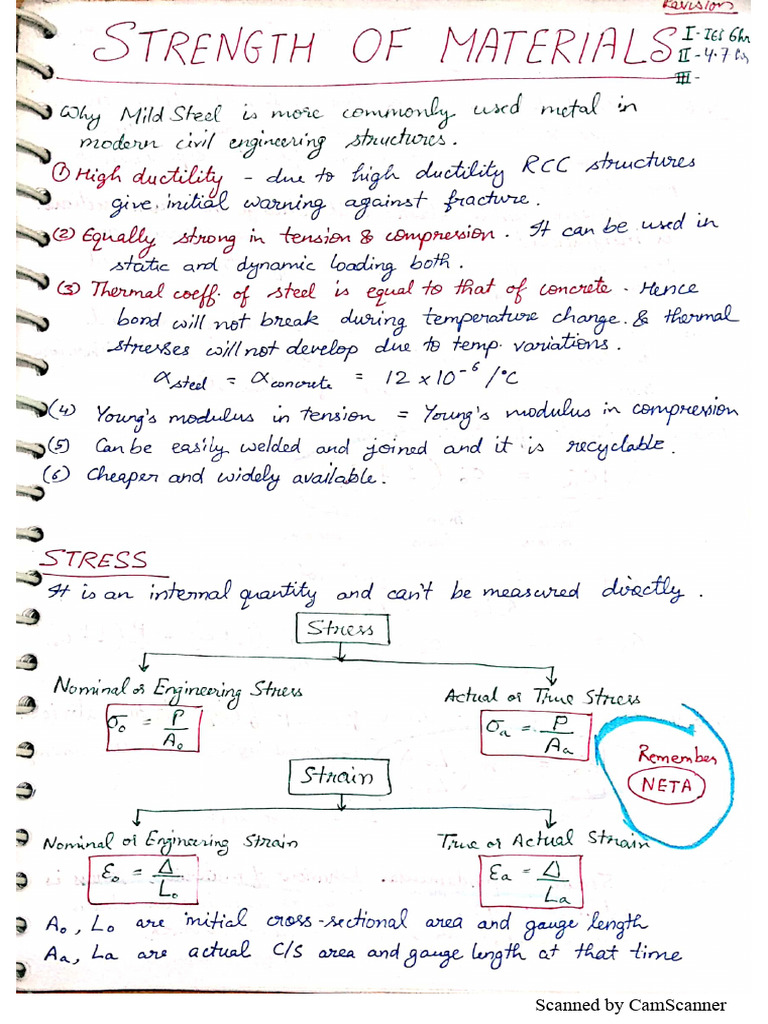 Revision
STRENGTH OF MATERIALS
I - IES 6hr
II - 4.7
III -
Why Mild Steel is more commonly used metal in
modern civil engineering structures.
(1) High ductility - due to high ductility RCC structures
give initial warning against fracture.
(2) Equally strong in tension & compression. It can be used in
static and dynamic loading both.
(3) Thermal coeff. of steel is equal to that of concrete. Hence
bond will not break during temperature change. & thermal
stresses will not develop due to temp. variations.
α steel = α concrete = 12 × 10⁻⁶ /°C
(4) Young's modulus in tension = Young's modulus in compression
(5) Can be easily welded and joined and it is recyclable.
(6) Cheaper and widely available.
STRESS
It is an internal quantity and can't be measured directly.
Stress
Nominal or Engineering Stress Actual or True Stress
σ₀ = P/A₀ σa = P/Aa
Remember
NETA
Strain
Nominal or Engineering Strain True or Actual Strain
ε₀ = Δ/L₀ εa = Δ/La
A₀, L₀ are initial cross-sectional area and gauge length
Aa, La are actual C/S area and gauge length at that time
Scanned by CamScanner